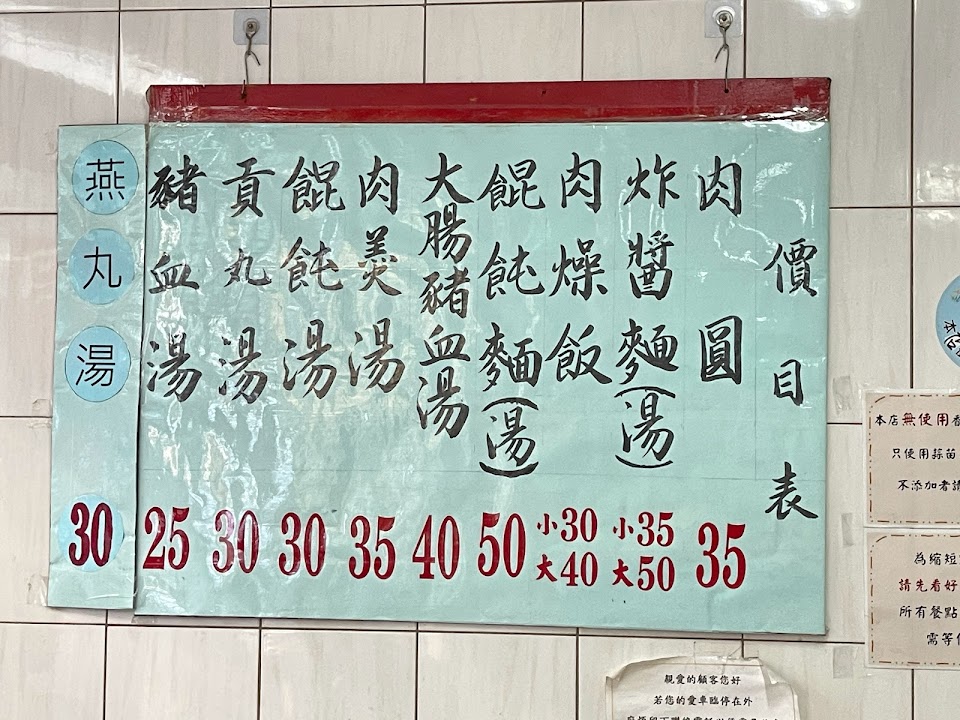 價目表
肉圓 35
炸醬麵(湯) 小35 大50
肉燥飯 小30 大40
餛飩麵(湯) 50
大腸豬血湯 40
肉羹湯 35
餛飩湯 30
貢丸湯 30
豬血湯 25
燕丸湯 30
本店無使用
只使用蒜苗
不添加者請
為縮短
請先看好
所有餐點
需等
親愛的顧客您好
若您的愛車臨停在外